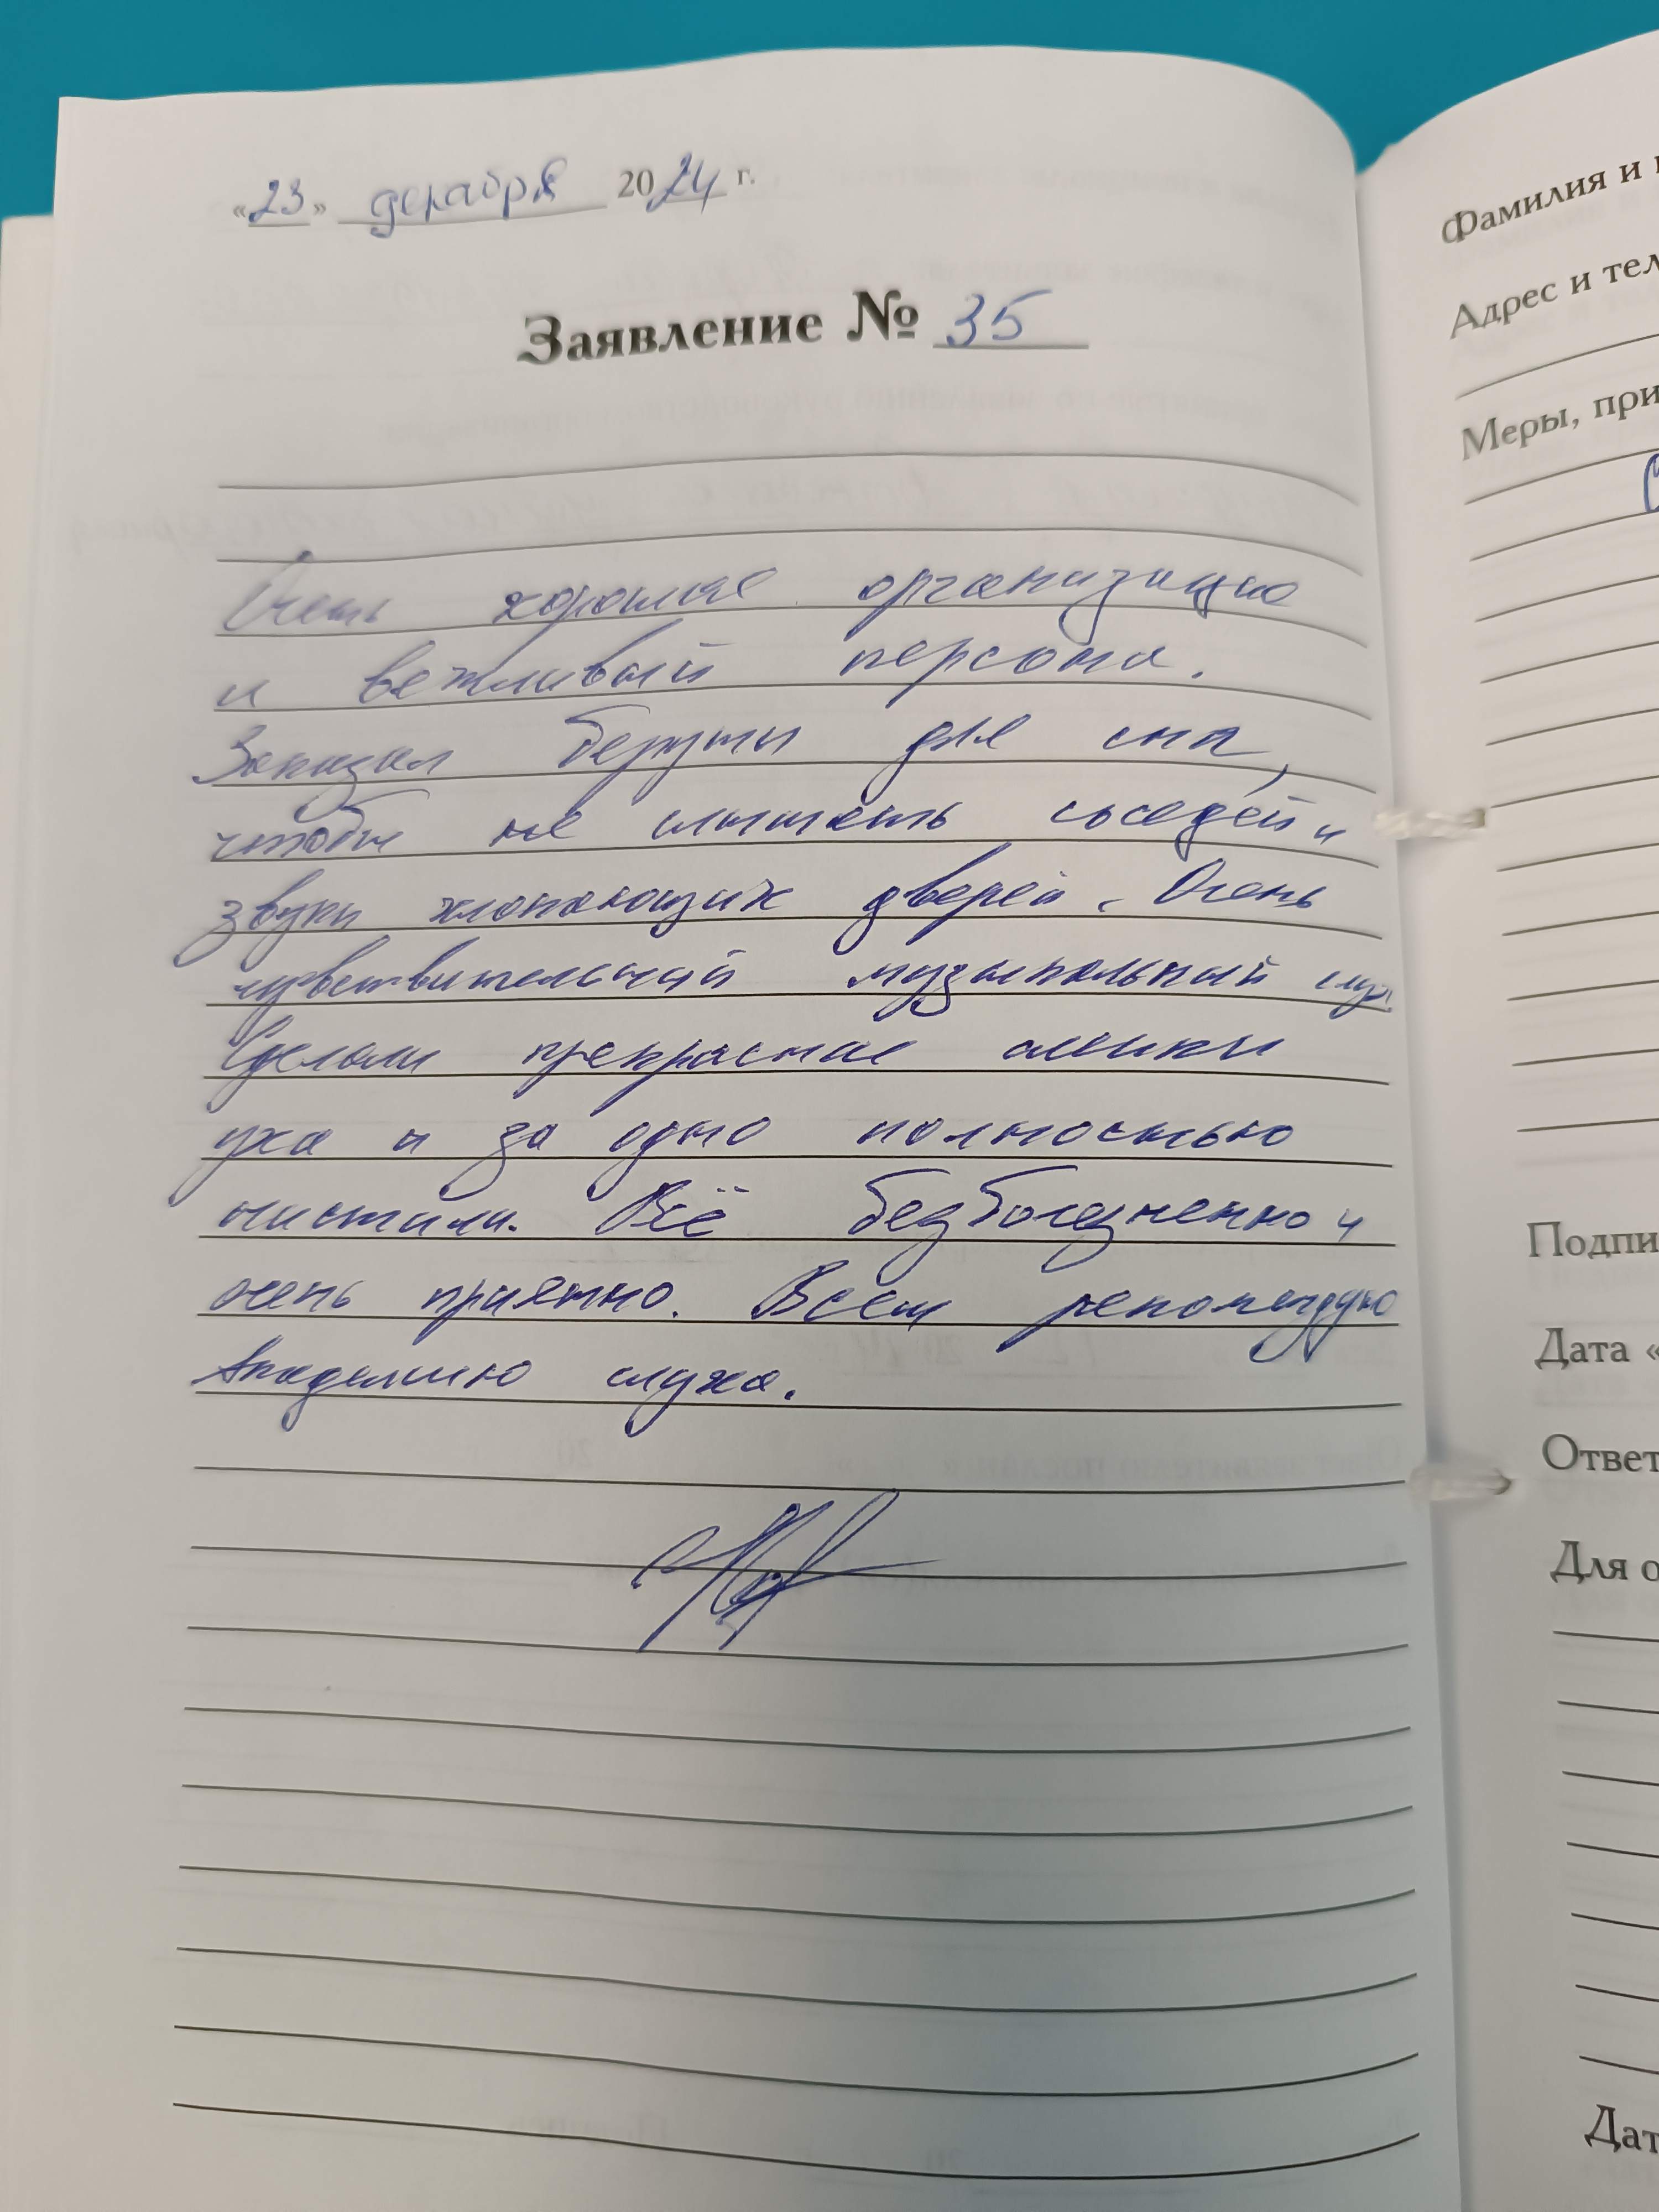 «23» декабря 2024 г.
Заявление № 35
Очень хорошая организация
и вежливый персонал.
Заказал беруши для сна,
чтобы не слышать соседей и
звуки хлопающих дверей. Очень
чувствительный музыкальный слух
Сделали прекрасные слепки
уха и за одно полностью
чистили. Всё безболезненно и
очень приятно. Всем рекомендую
Академию слуха.
Фамилия и
Адрес и тел
Меры, при
Подпи
Дата «
Ответ
Для о
Дат